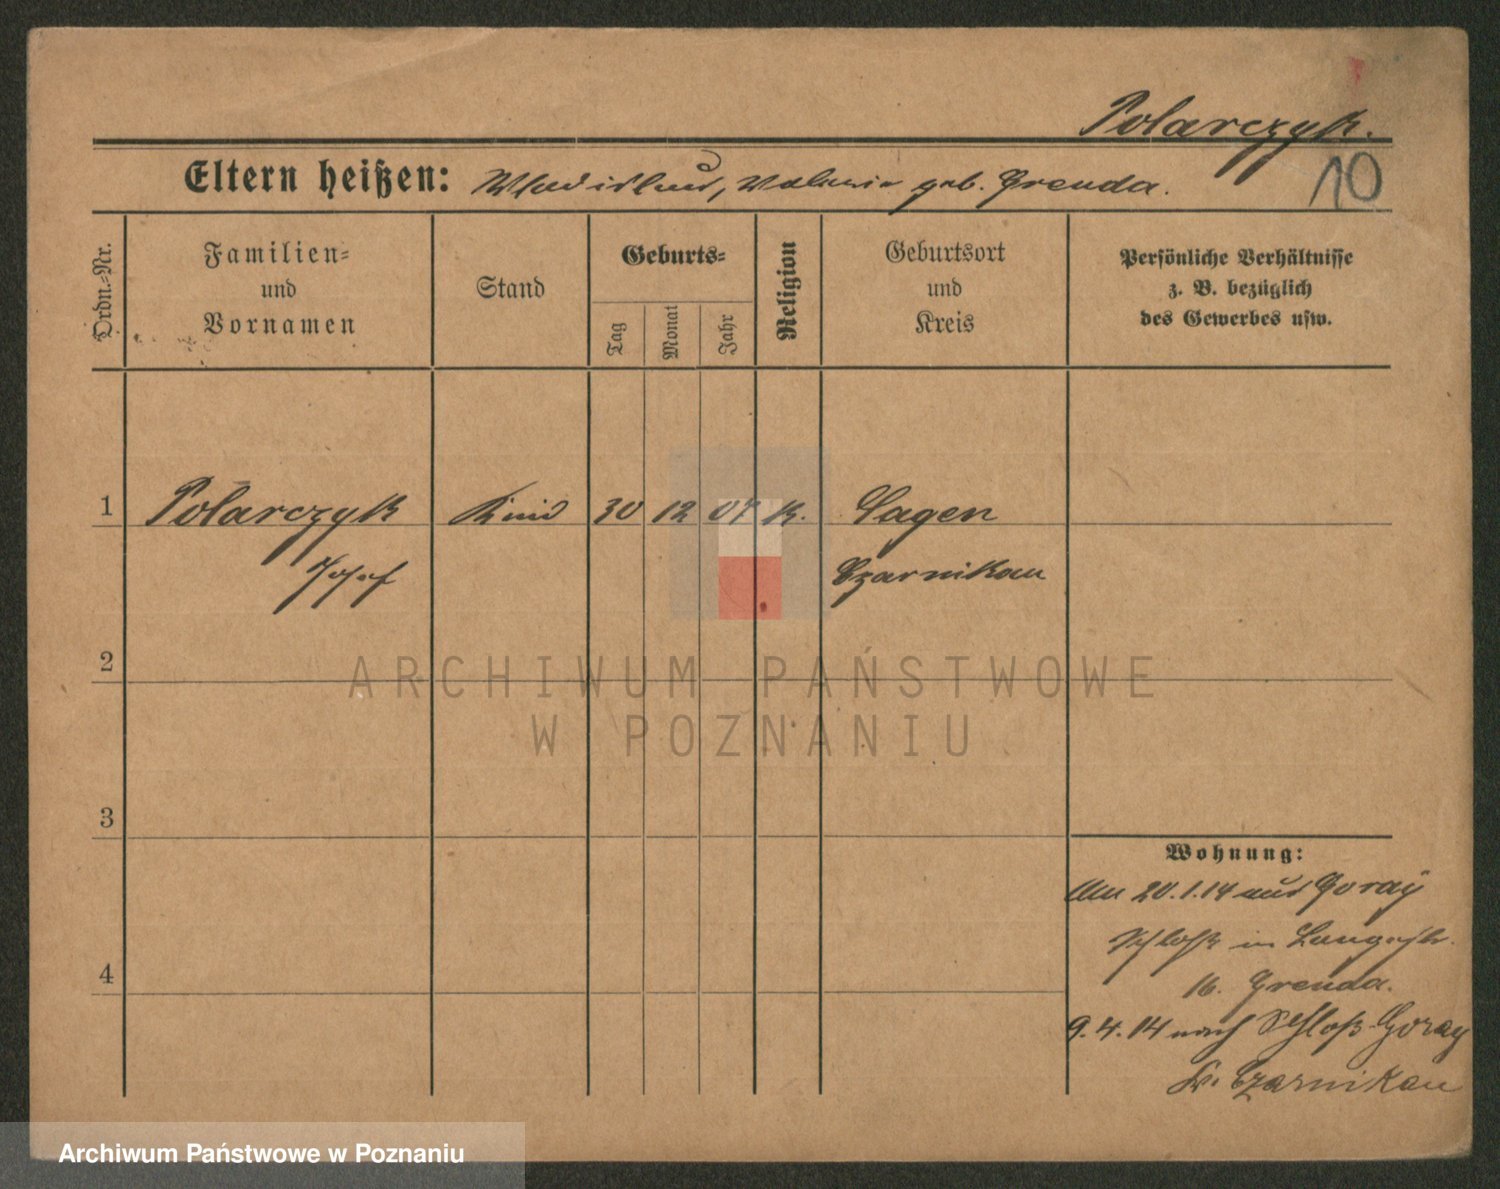 Polarczyk.
Eltern heißen: Wladislaus, Valeria geb. Grenda.
10
Ordn.-Nr.
Familien-
und
Vornamen
Stand
Geburts-
Tag
Monat
Jahr
Religion
Geburtsort
und
Kreis
Persönliche Verhältnisse
z. B. bezüglich
des Gewerbes usw.
1 Polarczyk Kind 30 12 07 k. Sagen
Josef Czarnikau
2
ARCHIWUM PAŃSTWOWE
W POZNANIU
3
Wohnung:
Am 20.1.14 aus Goray
Schloß in
4
16. Grenda.
9.4.14 nach Schloß Goray
Kr. Czarnikau
Archiwum Państwowe w Poznaniu